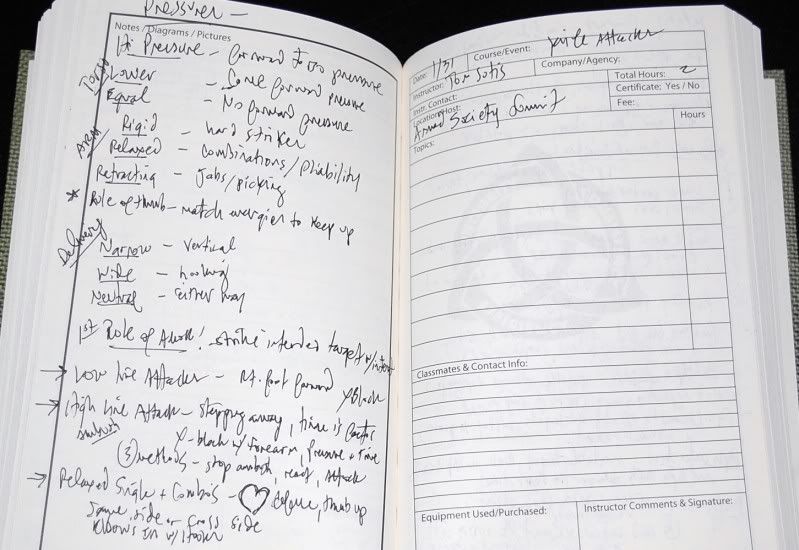 Pressures -
Notes / Diagrams / Pictures
Torso
Hi Pressure - forward torso pressure
Lower - Some forward pressure
Equal - No forward pressure
Arm
Rigid - hard striker
Relaxed - combinations/pliability
Retracting - Jabs/picking
* Role of thumb - match energies to keep up
Delivery
Narrow - vertical
Wide - hooking
Neutral - either way
1st Role of Attack! - strike intended target w/intent
→ Low line Attacks - Rt. foot forward
X Block
→ High Line Attack - stepping away, time is factor
ambush
X-block w/ forearm, pressure + time
③ methods - stop ambush, react, attack
→ Relaxed Single + Combos - ♡ defense, thumb up
Same side or cross side
elbows in w/
Date: 1/31 Course/Event: Knife Attacks
Instructor: Tom Sotis Company/Agency:
Instr. Contact: Total Hours: 2
Location/Host: Armed Society Summit Certificate: Yes / No
Fee:
Topics: Hours
Classmates & Contact Info:
Equipment Used/Purchased: Instructor Comments & Signature: